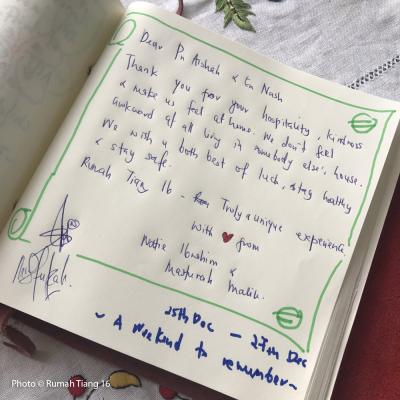 Dear Pn Aishah & En Nash
Thank you for your hospitality, kindness
& make us feel at home. We don't feel
awkward at all living in somebody else's house.
We wish u both best of luck, stay healthy
& stay safe.
Rumah Tiang 16 - Truly a unique experience.
With ♥ from
Ibrahim &
Masturah Malik.
25th Dec — 27th Dec
~ A weekend to remember ~
Photo © Rumah Tiang 16